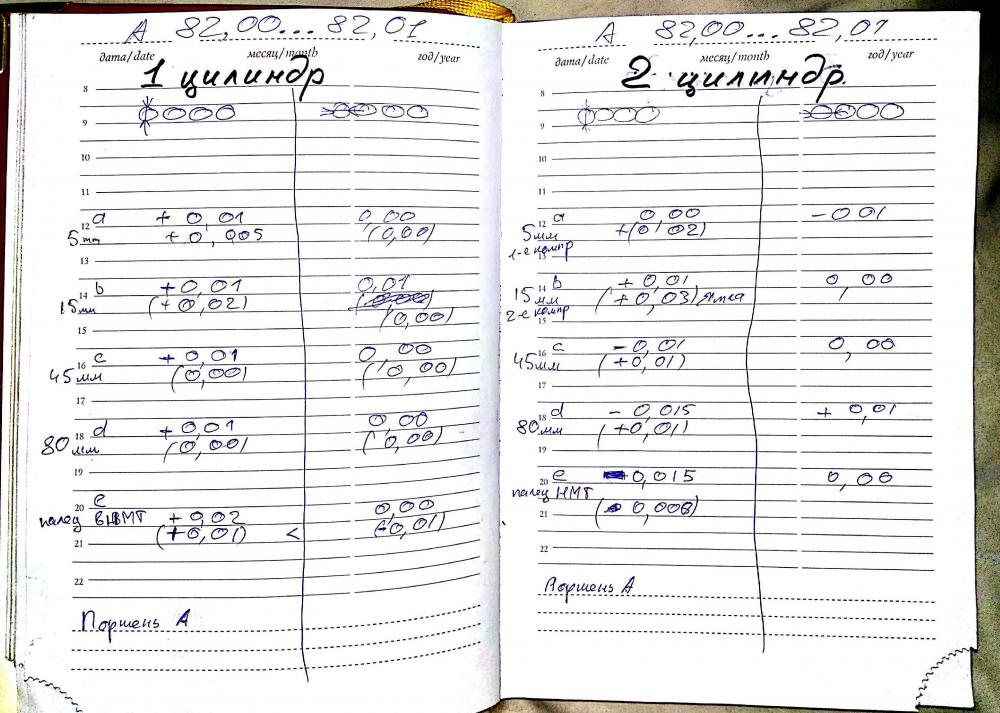 А 82,00...82,01
дата/date месяц/month год/year
1 цилиндр
8
9
10
11
12 a +0,01 0,00
5мм +0,005 (0,00)
13
14 b +0,01 0,01
15мм (+0,02)
15 (0,00)
16 c +0,01 0,00
45мм (0,00) (0,00)
17
18 d +0,01 0,00
80мм (0,00) (0,00)
19
20 e 0,00
палец в НМТ +0,02
21 (+0,01) < (-0,01)
22
Поршень А
А 82,00...82,01
дата/date месяц/month год/year
2 цилиндр.
8
9
10
11
12 a 0,00 -0,01
5мм +(0,02)
1-е компр
13
14 b +0,01 0,00
15мм (+0,03) ямка
2-е компр
15
16 c -0,01 0,00
45мм (+0,01)
17
18 d -0,015 +0,01
80мм (+0,01)
19
20 e -0,015 0,00
палец НМТ
21 (0,008)
22
Поршень А